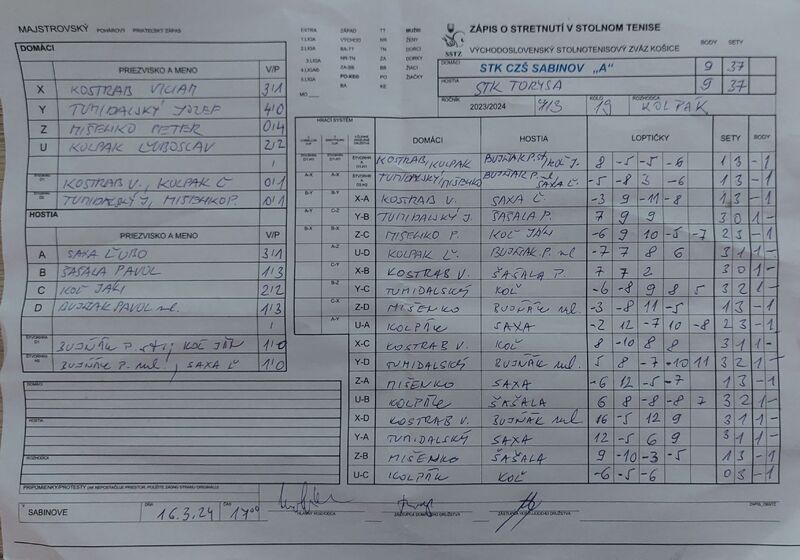 MAJSTROVSKÝ POHÁROVÝ PRIATEĽSKÝ ZÁPAS
ZÁPIS O STRETNUTÍ V STOLNOM TENISE
VÝCHODOSLOVENSKÝ STOLNOTENISOVÝ ZVÄZ KOŠICE
SSTZ
BODY SETY
DOMÁCI STK CZŠ SABINOV „A" 9 37
HOSTIA STK TORYSA 9 37
ROČNÍK 2023/2024 KOLO 19 ROZHODCA KOLPÁK
DOMÁCI
PRIEZVISKO A MENO V/P
X KOSTRAB VILIAM 3/1
Y TUMIDALSKÝ JOZEF 4/0
Z MIŠENKO PETER 0/4
U KOLPAK ĽUBOSLAV 2/2
KOSTRAB V., KOLPAK Ľ 0/1
TUMIDALSKÝ J, MIŠENKO P. 0/1
HOSTIA
PRIEZVISKO A MENO V/P
A SAXA ĽUBO 3/1
B ŠAŠALA PAVOL 1/3
C KOČ JÁN 2/2
D BUJŇAK PAVOL ml. 1/3
BUJŇÁK P. st., KOČ JÁN 1/0
BUJŇÁK P. ml., SAXA Ľ 1/0
DOMÁCI
HOSTIA
ROZHODCA
HRACÍ SYSTÉM
DOMÁCI HOSTIA LOPTIČKY SETY BODY
KOSTRAB, KOLPAK BUJŇAK P. st, KOČ J. 8 -5 -5 -6 1 3 -1
TUMIDALSKÝ, MIŠENKO BUJŇAK P. ml, SAXA Ľ. -5 -8 3 -6 1 3 -1
X-A KOSTRAB V. SAXA Ľ. -3 9 -11 -8 1 3 -1
Y-B TUMIDALSKÝ J. ŠAŠALA P. 7 9 9 3 0 1 -
Z-C MIŠENKO P. KOČ JÁN -6 9 10 -5 -7 2 3 -1
U-D KOLPAK Ľ. BUJŇAK P. ml -7 7 8 6 3 1 1 -
X-B KOSTRAB V. ŠAŠALA P. 7 7 2 3 0 1 -
Y-C TUMIDALSKÝ KOČ -6 -8 9 8 5 3 2 1 -
Z-D MIŠENKO BUJŇÁK ml. -3 -8 11 -5 1 3 -1
U-A KOLPÁK SAXA -2 12 -7 10 -8 2 3 -1
X-C KOSTRAB V. KOČ 8 -10 8 8 3 1 1 -
Y-D TUMIDALSKÝ BUJŇÁK ml. 5 8 -7 -10 11 3 2 1 -
Z-A MIŠENKO SAXA -6 12 -5 -7 1 3 -1
U-B KOLPÁK ŠAŠALA 6 8 -8 -8 7 3 2 1 -
X-D KOSTRAB V. BUJŇÁK ml 16 -5 12 9 3 1 1 -
Y-A TUMIDALSKÝ SAXA 12 -5 6 9 3 1 1 -
Z-B MIŠENKO ŠAŠALA 9 -10 -3 -5 1 3 -1
U-C KOLPÁK KOČ -6 -5 -6 0 3 -1
PRIPOMIENKY/PROTESTY
V SABINOVE DŇA 16.3.24 ČAS 17⁰⁰
HLAVNÝ ROZHODCA ZÁSTUPCA DOMÁCEHO DRUŽSTVA ZÁSTUPCA HOSŤUJÚCEHO DRUŽSTVA